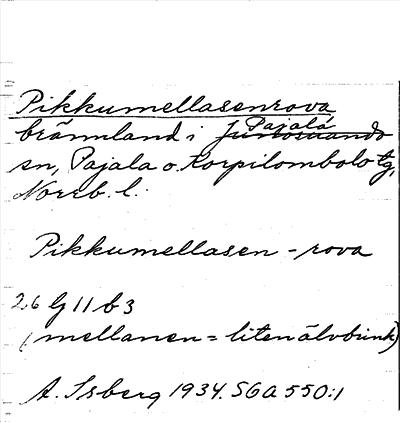 Pikkumellasenrova
brännland i Junosuando Pajala
sn, Pajala o. Korpilombolo tg,
Norrb. l.
Pikkumellasen - rova
26 G 11 b 3
(mellanen = liten älvbrink)
A. Isberg 1934. SGA 550:1